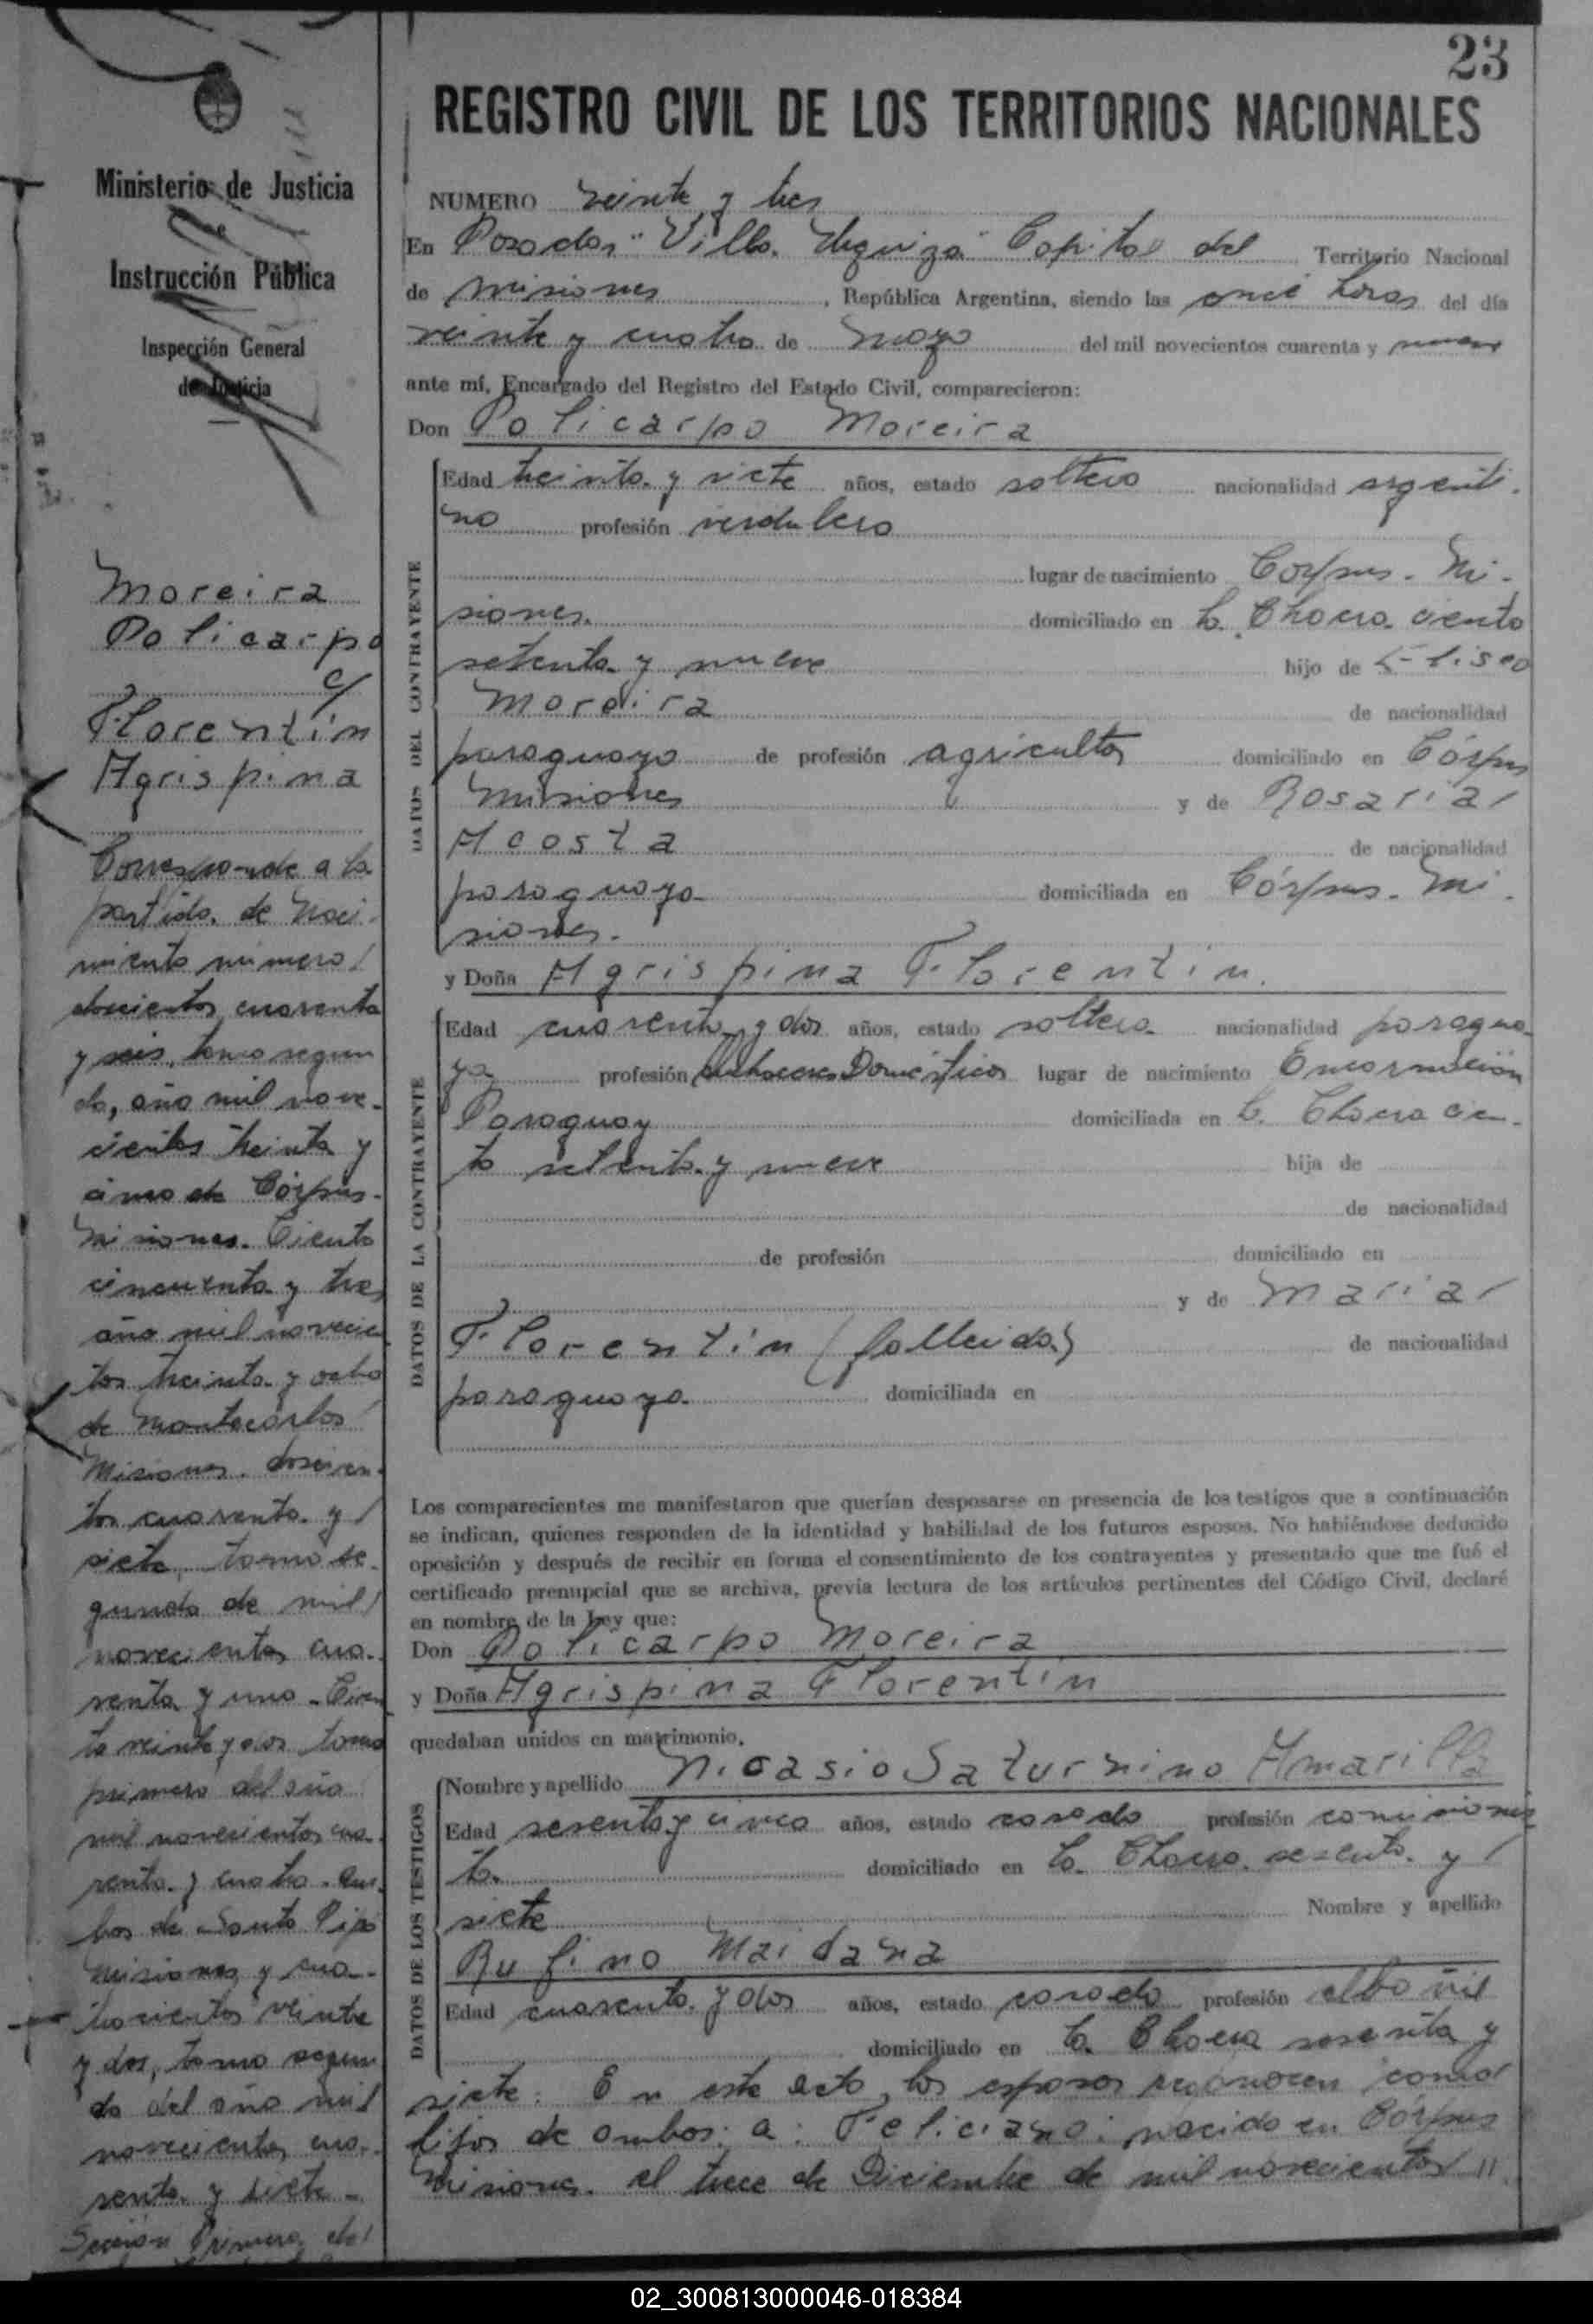 23
REGISTRO CIVIL DE LOS TERRITORIOS NACIONALES
Ministerio de Justicia
e
Instrucción Pública
Inspección General
de Justicia
Moreira
Policarpo
c/
Florentín
Agrispina
Corresponde a la
partida de Naci-
miento número/
doscientos cuarenta
y seis, tomo segun
do, año mil nove-
cientos treinta y
cinco de Córpus-
Misiones. Ciento
cincuenta y tres
año mil novecien
tos treinta y ocho
de Montecarlos
Misiones. doscien-
tos cuarenta y/
siete, tomo se-
gundo de mil/
novecientos cua-
renta y uno - Cien
to veinte y dos tomo
primero del año
mil novecientos cua-
renta y cuatro - am-
bos de Santo Pipó
Misiones y cua-
trocientos veinte
y dos, tomo segun
do del año mil
novecientos cua-
renta y siete -
Sección Primera del
NUMERO veinte y tres
En Posadas "Villa Urquiza" Capital del Territorio Nacional
de Misiones, República Argentina, siendo las once horas del día
veinte y cuatro de mayo del mil novecientos cuarenta y nueve
ante mí, Encargado del Registro del Estado Civil, comparecieron:
Don Policarpo Moreira
DATOS DEL CONTRAYENTE
Edad treinta y siete años, estado soltero nacionalidad argenti-
no profesión verdulero
lugar de nacimiento Corpus - Mi-
siones. domiciliado en la Chacra ciento
setenta y nueve hijo de Eliseo
Moreira de nacionalidad
paraguayo de profesión agricultor domiciliado en Córpus
Misiones y de Rosaria/
Acosta de nacionalidad
paraguaya domiciliada en Córpus - Mi-
siones.
y Doña Agrispina Florentín.
DATOS DE LA CONTRAYENTE
Edad cuarenta y dos años, estado soltera nacionalidad paragua-
ya profesión Quehaceres Domésticos lugar de nacimiento Encarnación
Paraguay domiciliada en la Chacra cien-
to setenta y nueve hija de
de nacionalidad
de profesión domiciliado en
y de Maria/
Florentín (fallecida) de nacionalidad
paraguaya domiciliada en
Los comparecientes me manifestaron que querían desposarse en presencia de los testigos que a continuación
se indican, quienes responden de la identidad y habilidad de los futuros esposos. No habiéndose deducido
oposición y después de recibir en forma el consentimiento de los contrayentes y presentado que me fué el
certificado prenupcial que se archiva, previa lectura de los artículos pertinentes del Código Civil, declaré
en nombre de la Ley que:
Don Policarpo Moreira
y Doña Agrispina Florentín
quedaban unidos en matrimonio.
DATOS DE LOS TESTIGOS
Nombre y apellido Nicasio Saturnino Amarilla
Edad sesenta y cinco años, estado casado profesión comisionis
ta domiciliado en la Chacra sesenta y/
siete Nombre y apellido
Rufino Maidana
Edad cuarenta y dos años, estado casado profesión albañil
domiciliado en la Chacra sesenta y
siete. En este acto los esposos reconocen como/
hijos de ambos: a: Feliciano: nacido en Córpus
Misiones. el trece de Diciembre de mil novecientos //
02_300813000046-018384